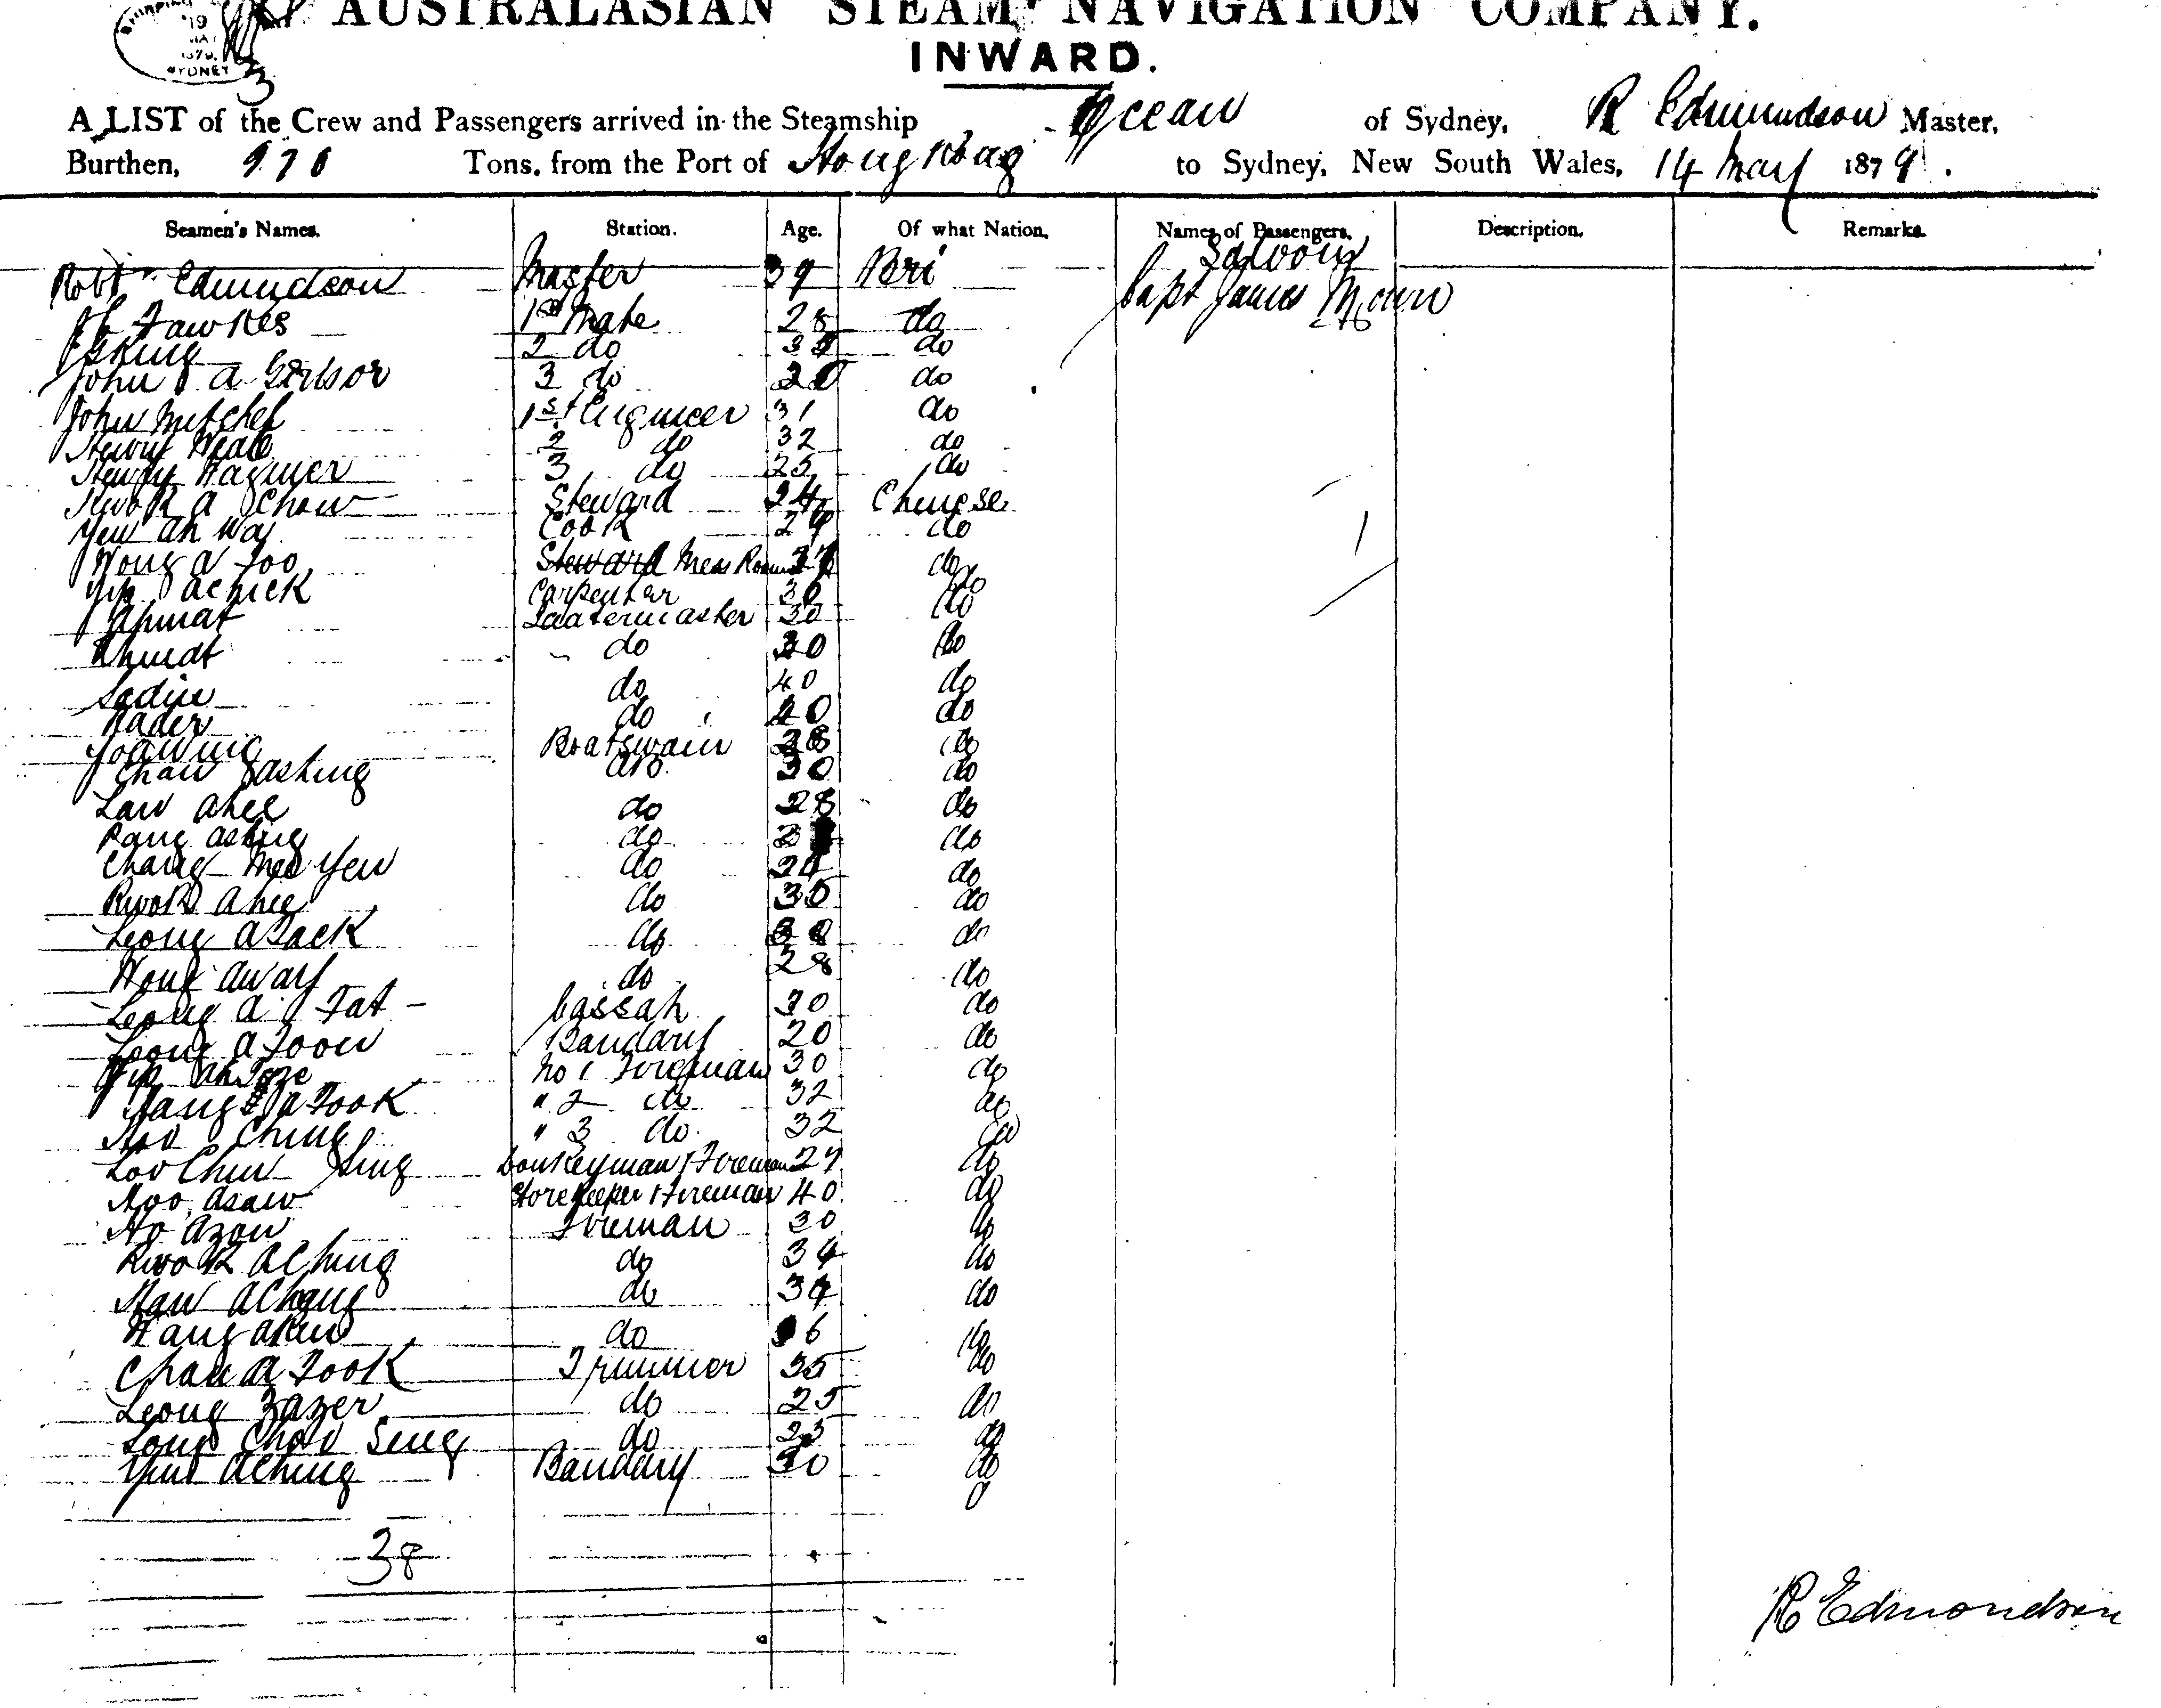 SHIPPING
19
MAY
1879
SYDNEY
AUSTRALASIAN STEAM NAVIGATION COMPANY.
INWARD.
A LIST of the Crew and Passengers arrived in the Steamship Ocean of Sydney, R Edmundson Master,
Burthen, Tons, from the Port of Hong Kong to Sydney, New South Wales, 14 May 1879.
Seamen's Names. Station. Age. Of what Nation. Names of Passengers. Description. Remarks.
Saloon
Robt Edmundson Master 39 Bri Capt James
Fawkes 1st Mate 28 do
King 2 do do
John A Gibson 3 do do
John Mitchel 1st Engineer 31 do
Henry Neale 2 do 32 do
Henry Warner 3 do 25 do
Kwok A Chow Steward 24 Chinese
Yew Ah Way Cook 29 do
Wong A Foo Steward Mess Room do
Yip Achick Carpenter 30 do
Ahmat Quatermaster 30 do
Ahmat do 30 do
Sadin do 40 do
Kader do 40 do
Boatswain 28 do
Chaw Jashing do 30 do
Law Ahee do 28 do
Pang Ashing do do
Chang Mee Yew do 24 do
Kwok Ahee do 35 do
Leong Asack do 38 do
Wong Away do 28 do
Leong A Fat Cassah 30 do
Leong A Foon Bandary 20 do
Yip No 1 Fireman 30 do
A Fook " 2 do 32 do
Ching " 3 do 32 do
Loo Chun Sing Donkeyman & Fireman 27 do
Asaw Storekeeper & Fireman 40 do
Ho Azow Fireman 30 do
Kwok Aching do 34 do
Achang do 34 do
Wang Akew do 36 do
Chan A Fook Trimmer 35 do
Leong Zazer do 25 do
Long Chow Seng do 23 do
Yew Aching Bandary 30 do
38
R Edmondson